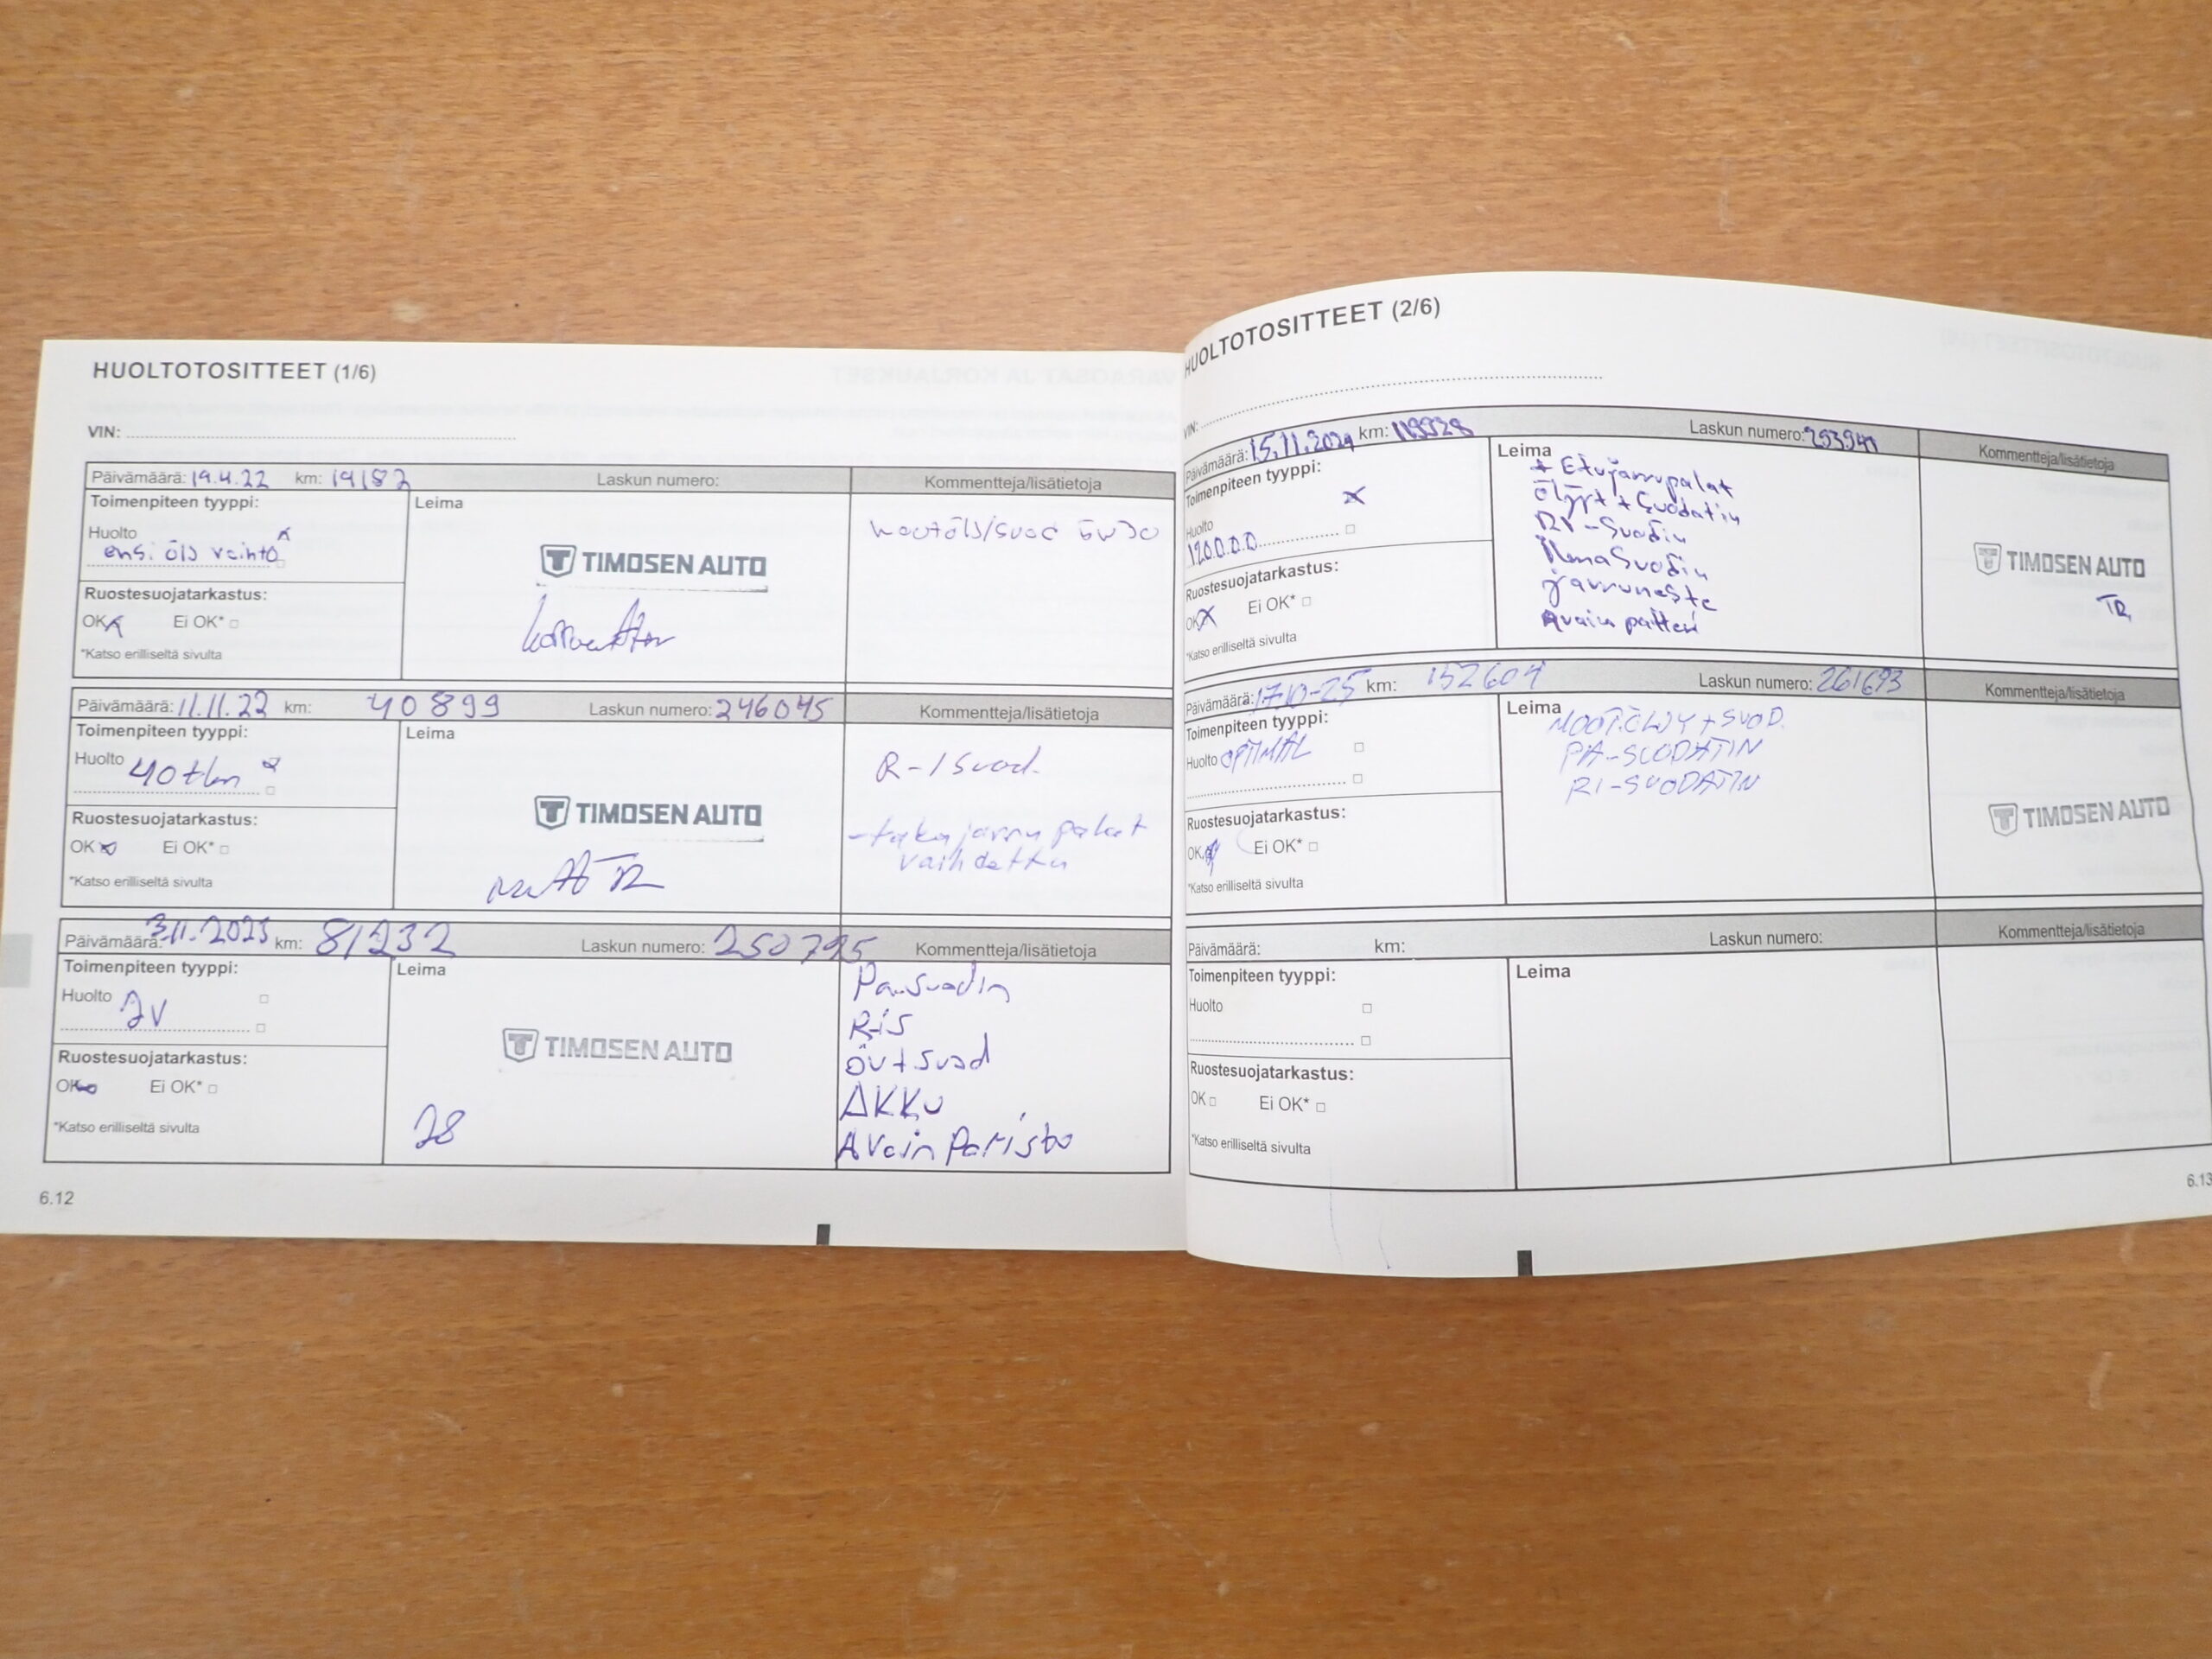 HUOLTOTOSITTEET (1/6)
VIN:
Päivämäärä: 19.4.22 km: 19182 Laskun numero: Kommentteja/lisätietoja
Toimenpiteen tyyppi: Leima
Huolto x
ensi. ölj vaihto
TIMOSEN AUTO
Ruostesuojatarkastus:
OK Ei OK*
*Katso erilliseltä sivulta
Päivämäärä: 11.11.22 km: 40899 Laskun numero: 246045 Kommentteja/lisätietoja
Toimenpiteen tyyppi: Leima
Huolto 40tkm
R-/Suod.
TIMOSEN AUTO
-takajarru palat
vaihdettu
Ruostesuojatarkastus:
OK Ei OK*
*Katso erilliseltä sivulta
Päivämäärä: 3.11.2023 km: 81232 Laskun numero: 250795 Kommentteja/lisätietoja
Toimenpiteen tyyppi: Leima
Huolto 2V
Pa-suodin
R-is
öv+suod
AKKU
Avain Paristo
TIMOSEN AUTO
Ruostesuojatarkastus:
OK Ei OK*
*Katso erilliseltä sivulta
6.12
HUOLTOTOSITTEET (2/6)
VIN:
Päivämäärä: 15.11.2024 km: 119928 Laskun numero: 253941 Kommentteja/lisätietoja
Toimenpiteen tyyppi: x Leima
Huolto
120.0.0.0
+ Etujarrupalat
Öljyt + Suodatin
RI-Suodin
Ilmasuodin
jarruneste
Avain patteri
TIMOSEN AUTO
TR
Ruostesuojatarkastus:
OK Ei OK*
*Katso erilliseltä sivulta
Päivämäärä: 17-10-25 km: 152604 Laskun numero: 261693 Kommentteja/lisätietoja
Toimenpiteen tyyppi: Leima
Huolto OPTIMAL
MOOT.ÖLJY + SUOD.
PA-SUODATIN
RI-SUODATIN
TIMOSEN AUTO
Ruostesuojatarkastus:
OK Ei OK*
*Katso erilliseltä sivulta
Päivämäärä: km: Laskun numero: Kommentteja/lisätietoja
Toimenpiteen tyyppi: Leima
Huolto
Ruostesuojatarkastus:
OK Ei OK*
*Katso erilliseltä sivulta
6.13